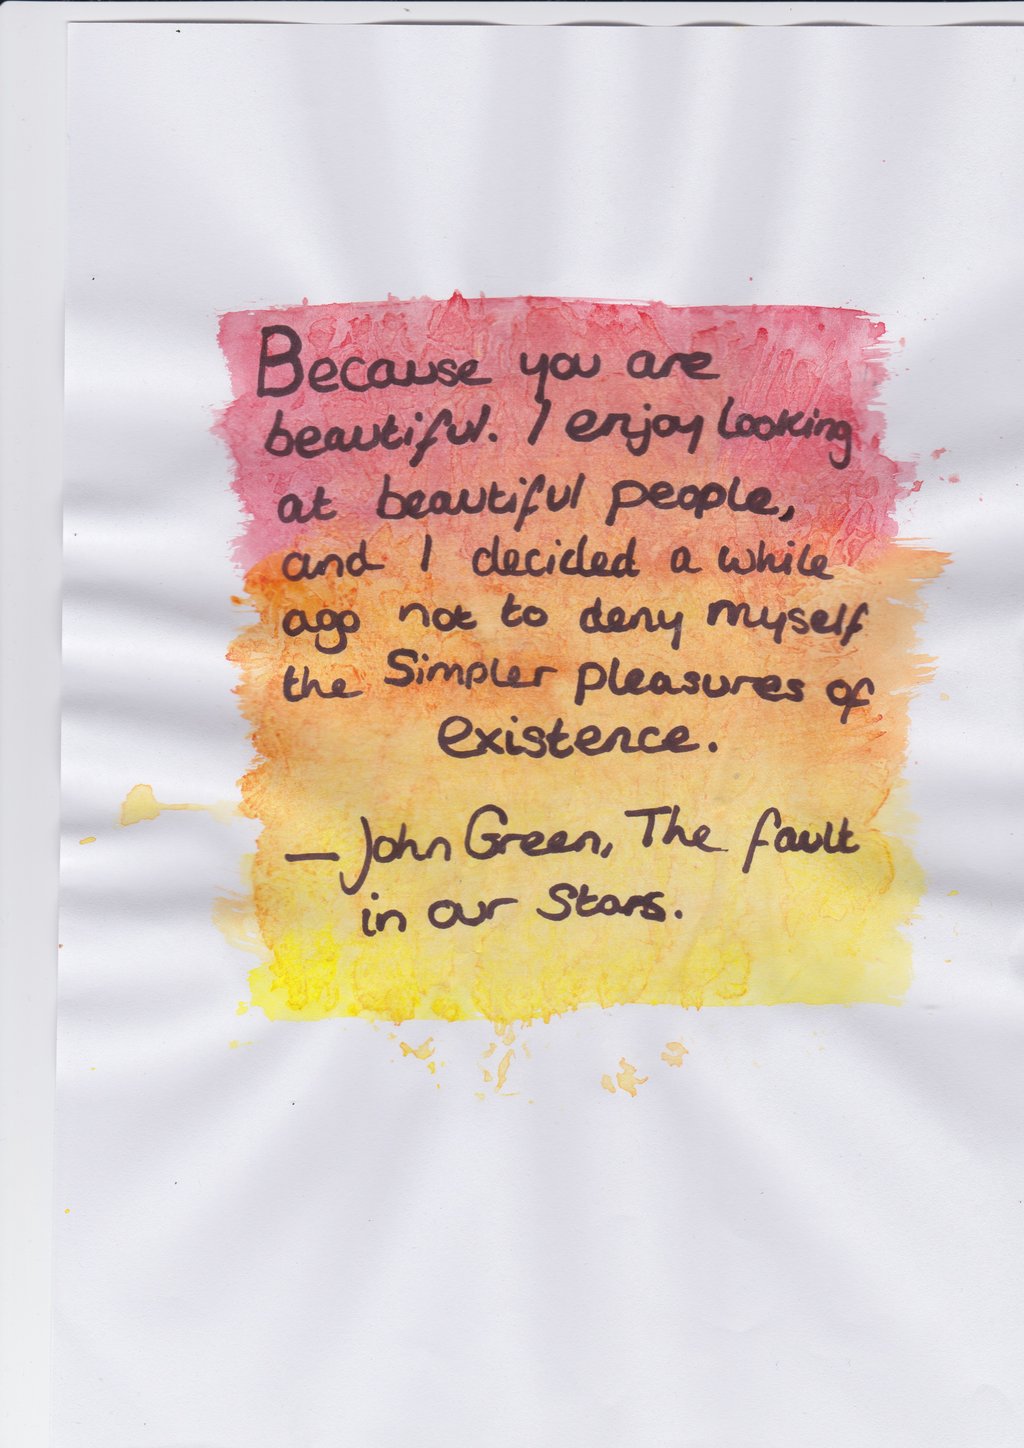 Because you are
beautiful. I enjoy looking
at beautiful people,
and I decided a while
ago not to deny myself
the Simpler pleasures of
existence.
— John Green, The fault
in our Stars.